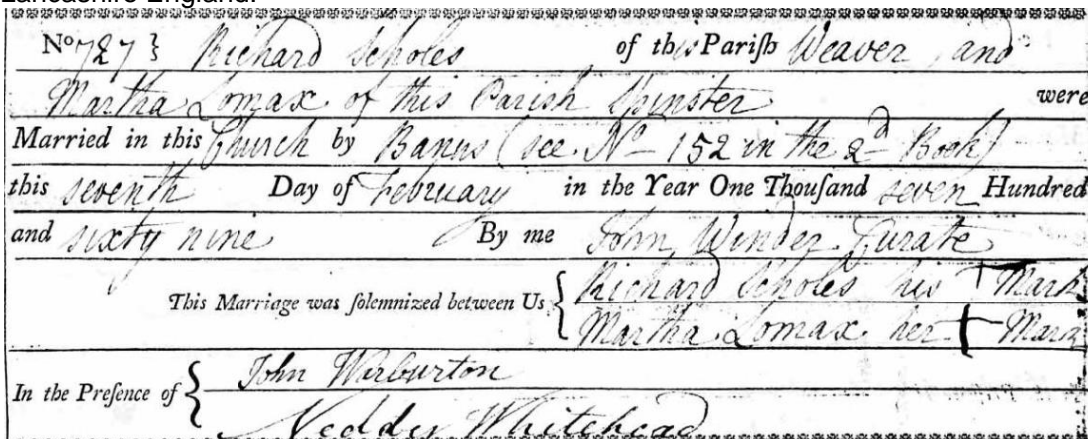 Lancashire England.
No 727 } Richard Scholes of this Pariſh Weaver and
Martha Lomax of this Parish Spinster were
Married in this Church by Banns (see No 152 in the 2d Book)
this seventh Day of February in the Year One Thouſand seven Hundred
and sixty nine By me John Winder Curate
This Marriage was ſolemnized between Us { Richard Scholes his Mark
Martha Lomax her Mark
In the Preſence of { John Warburton
Nedder Whitehead